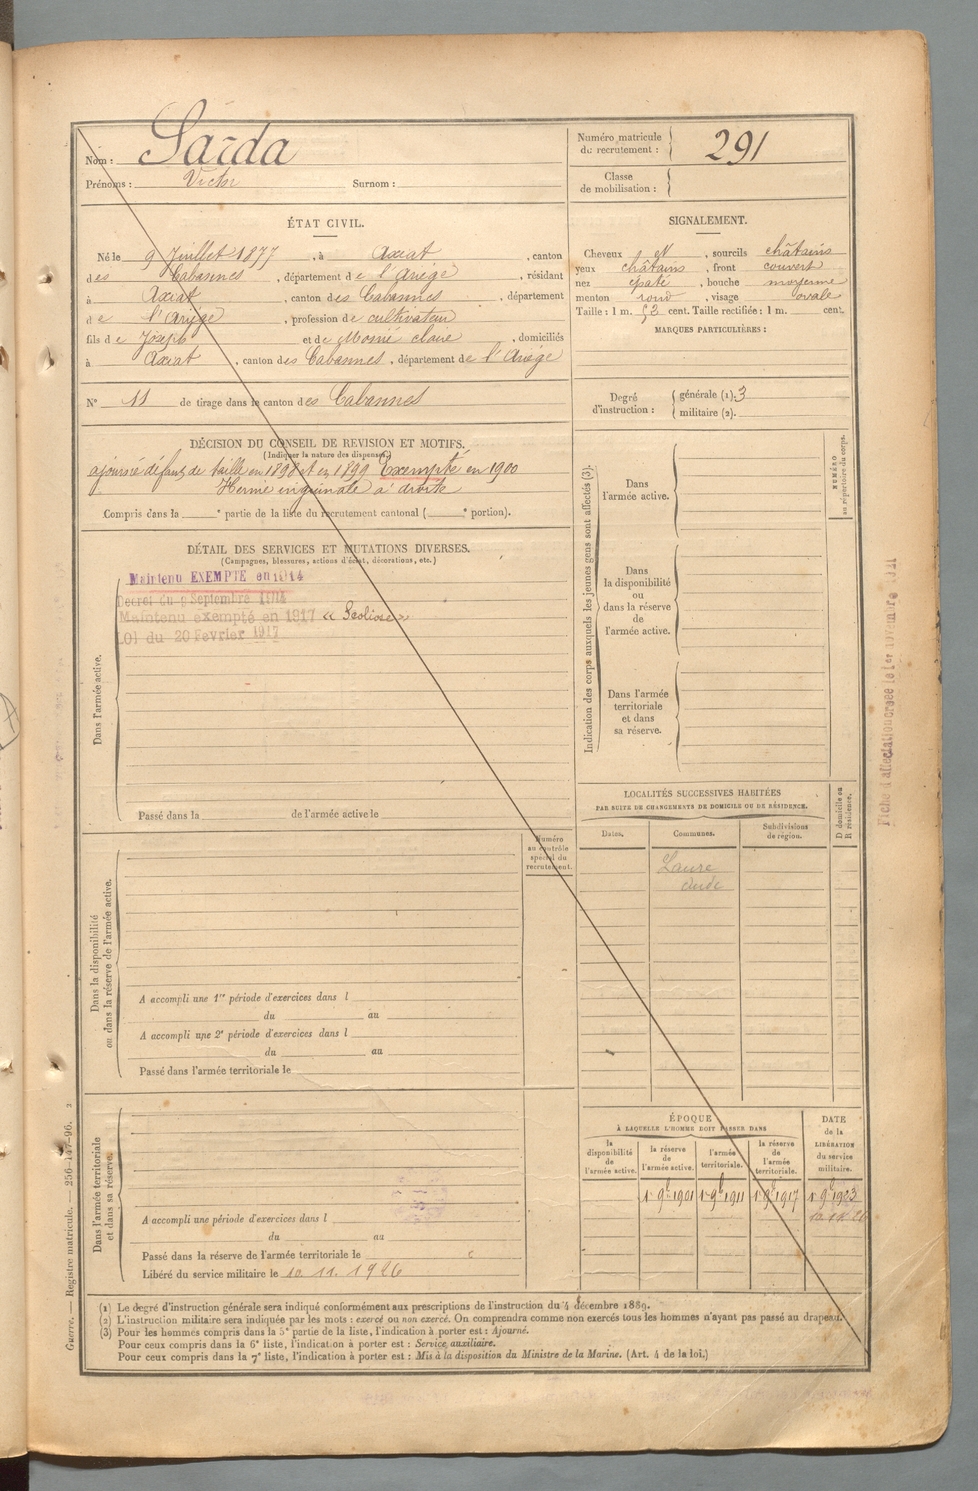 Nom : Sarda
Prénoms : Victor Surnom :
Numéro matricule du recrutement : 291
Classe de mobilisation :
ÉTAT CIVIL.
Né le 9 Juillet 1877, à Axiat, canton
des Cabannes, département de l'Ariège, résidant
à Axiat, canton des Cabannes, département
de l'Ariège, profession de cultivateur
fils de Joseph et de Momé Claire, domiciliés
à Axiat, canton des Cabannes, département de l'Ariège
N° 11 de tirage dans le canton des Cabannes
SIGNALEMENT.
Cheveux et, sourcils châtains
yeux châtains, front couvert
nez épaté, bouche moyenne
menton rond, visage ovale
Taille : 1 m. 52 cent. Taille rectifiée : 1 m. cent.
MARQUES PARTICULIÈRES :
Degré d'instruction : générale (1). 3
militaire (2).
DÉCISION DU CONSEIL DE REVISION ET MOTIFS.
(Indiquer la nature des dispenses.)
ajourné défaut de taille en 1898 et en 1899 Exempté en 1900
Hernie inguinale à droite
Compris dans la e partie de la liste du recrutement cantonal ( e portion).
DÉTAIL DES SERVICES ET MUTATIONS DIVERSES.
(Campagnes, blessures, actions d'éclat, décorations, etc.)
Maintenu EXEMPTÉ en 1914
Décret du 9 Septembre 1914
Maintenu exempté en 1917 « Scoliose »
Loi du 20 Février 1917
Dans l'armée active.
Passé dans la de l'armée active le
Indication des corps auxquels les jeunes gens sont affectés (3).
NUMÉRO au répertoire du corps.
Dans l'armée active.
Dans la disponibilité ou dans la réserve de l'armée active.
Dans l'armée territoriale et dans sa réserve.
Fiche d'affectation créée le 1er novembre 1921
LOCALITÉS SUCCESSIVES HABITÉES
PAR SUITE DE CHANGEMENTS DE DOMICILE OU DE RÉSIDENCE.
Dates. Communes. Subdivisions de région. D domicile ou R résidence.
Laure
Aude
Numéro au contrôle spécial du recrutement.
Dans la disponibilité ou dans la réserve de l'armée active.
A accompli une 1re période d'exercices dans l
du au
A accompli une 2e période d'exercices dans l
du au
Passé dans l'armée territoriale le
Dans l'armée territoriale et dans sa réserve.
A accompli une période d'exercices dans l
du au
Passé dans la réserve de l'armée territoriale le
Libéré du service militaire le 10. 11. 1926
ÉPOQUE
À LAQUELLE L'HOMME DOIT PASSER DANS
DATE de la LIBÉRATION du service militaire.
la disponibilité de l'armée active. la réserve de l'armée active. l'armée territoriale. la réserve de l'armée territoriale.
1er 9bre 1901 1er 9bre 1911 1er 9bre 1917 1er 9bre 1923
Guerre. — Registre matricule. — 256-147-96.
(1) Le degré d'instruction générale sera indiqué conformément aux prescriptions de l'instruction du 4 décembre 1889.
(2) L'instruction militaire sera indiquée par les mots : exercé ou non exercé. On comprendra comme non exercés tous les hommes n'ayant pas passé au drapeau.
(3) Pour les hommes compris dans la 5e partie de la liste, l'indication à porter est : Ajourné.
Pour ceux compris dans la 6e liste, l'indication à porter est : Service auxiliaire.
Pour ceux compris dans la 7e liste, l'indication à porter est : Mis à la disposition du Ministre de la Marine. (Art. 4 de la loi.)